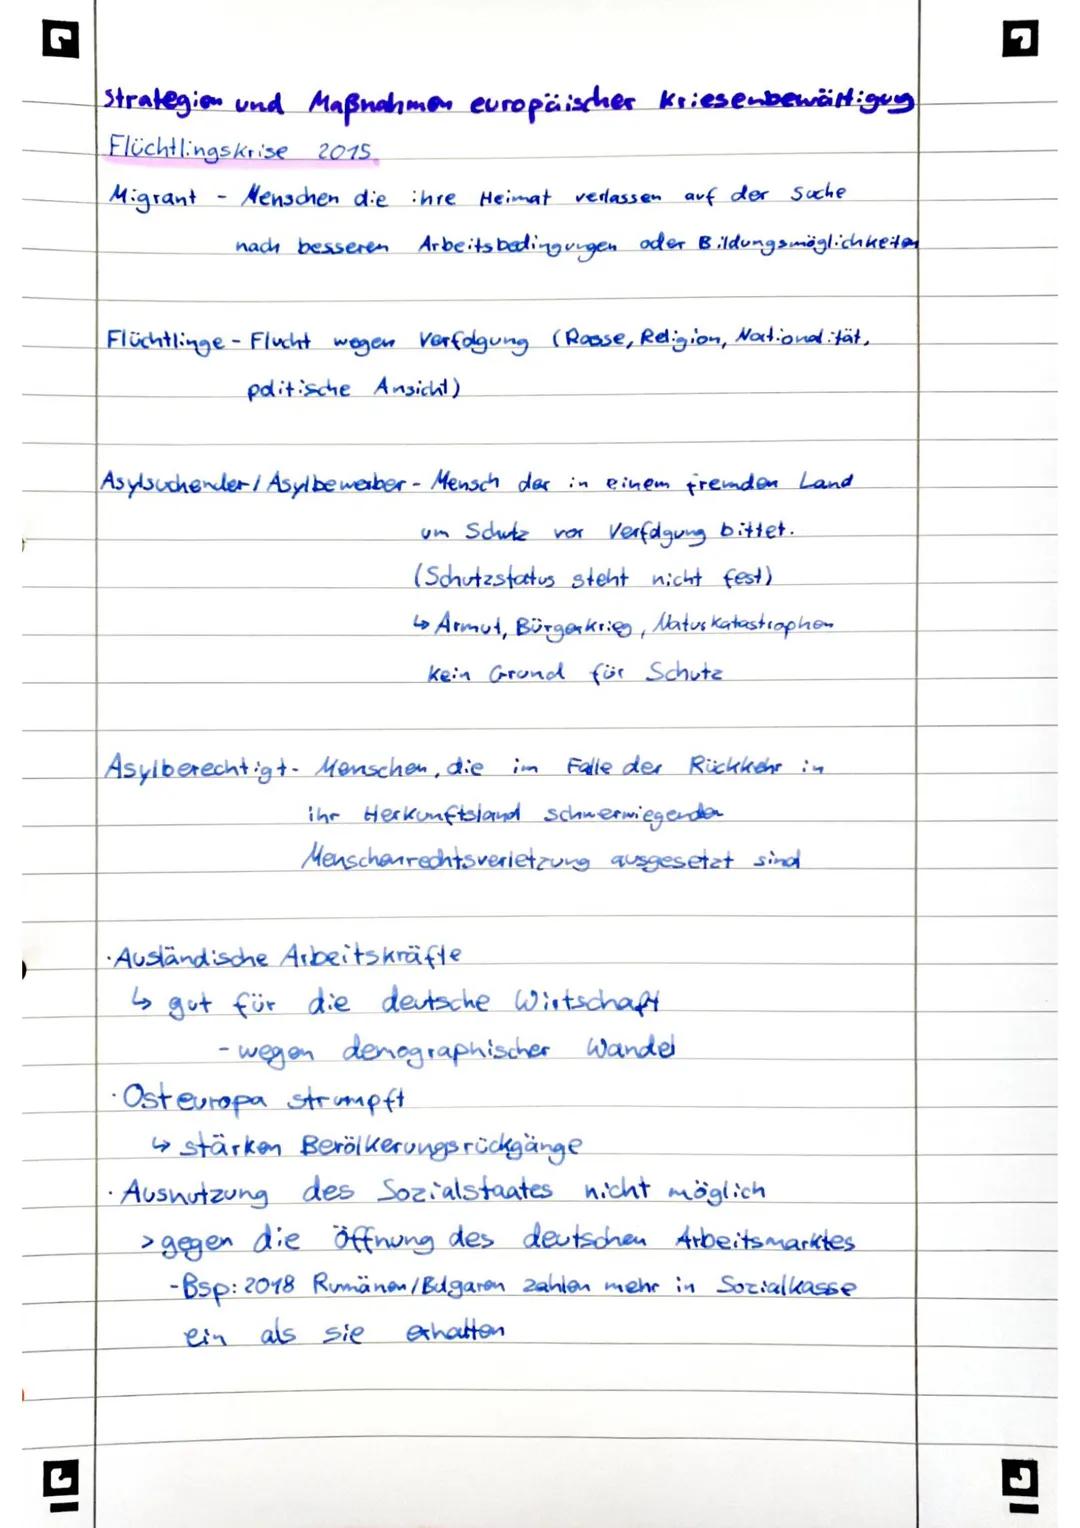 Strategien und Maßnahmen europäischer Kriesenbewältigug
Flüchtlingskrise 2015
Migrant - Menschen die ihre Heimat verlassen auf der Suche
nach besseren Arbeitsbedingungen oder Bildungsmöglichkeiten
Flüchtlinge - Flucht wegen Verfolgung (Rasse, Religion, Nationalität,
politische Ansicht)
Asylsuchender / Asylbewerber - Mensch der in einem fremden Land
um Schutz vor Verfolgung bittet.
(Schutzstatus steht nicht fest)
↳ Armut, Bürgerkrieg, Naturkatastrophen
kein Grund für Schutz
Asylberechtigt - Menschen, die im Falle der Rückkehr in
ihr Herkunftsland schwerwiegenden
Menschenrechtsverletzung ausgesetzt sind
· Ausländische Arbeitskräfte
↳ gut für die deutsche Wirtschaft
- wegen demographischer Wandel
· Osteuropa strumpft
↳ stärken Bevölkerungsrückgänge
· Ausnutzung des Sozialstaates nicht möglich
> gegen die Öffnung des deutschen Arbeitsmarktes
- Bsp: 2018 Rumänen/Bulgaren zahlen mehr in Sozialkasse
ein als sie erhalten